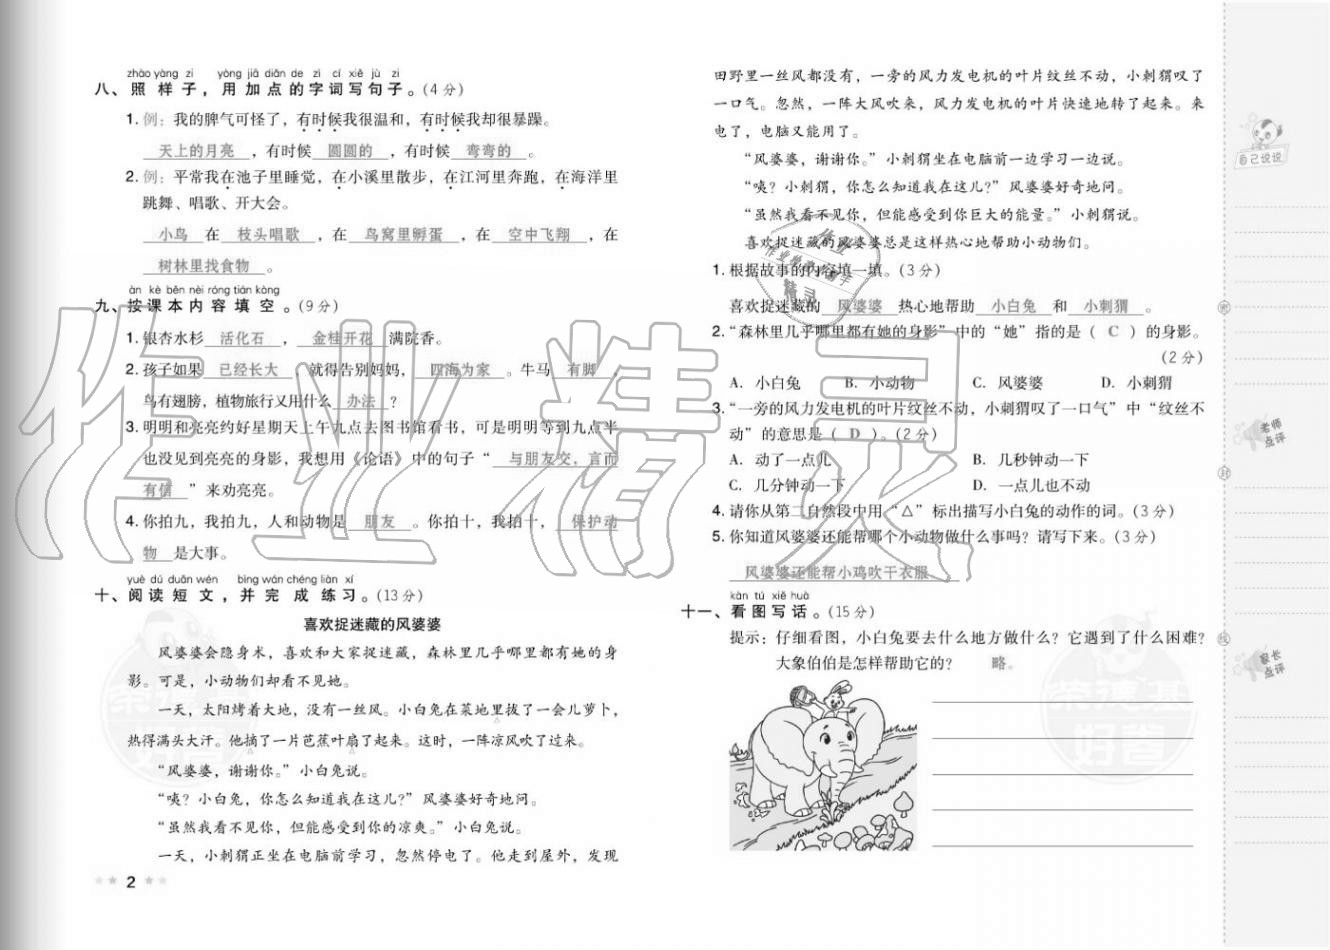 zhào yàng zi yòng jiā diǎn de zì cí xiě jù zi
八、照样子，用加点的字词写句子。(4分)
1. 例：我的脾气可怪了，有时候我很温和，有时候我却很暴躁。
天上的月亮，有时候 圆圆的，有时候 弯弯的。
2. 例：平常我在池子里睡觉，在小溪里散步，在江河里奔跑，在海洋里
跳舞、唱歌、开大会。
小鸟 在 枝头唱歌，在 鸟窝里孵蛋，在 空中飞翔，在
树林里找食物。
àn kè běn nèi róng tián kòng
九、按课本内容填空。(9分)
1. 银杏水杉 活化石，金桂开花 满院香。
2. 孩子如果 已经长大，就得告别妈妈，四海为家。牛马 有脚，
鸟有翅膀，植物旅行又用什么 办法？
3. 明明和亮亮约好星期天上午九点去图书馆看书，可是明明等到九点半
也没见到亮亮的身影，我想用《论语》中的句子“与朋友交，言而
有信”来劝亮亮。
4. 你拍九，我拍九，人和动物是 朋友。你拍十，我拍十，保护动
物 是大事。
yuè dú duǎn wén bìng wán chéng liàn xí
十、阅读短文，并完成练习。(13分)
喜欢捉迷藏的风婆婆
风婆婆会隐身术，喜欢和大家捉迷藏，森林里几乎哪里都有她的身
影。可是，小动物们却看不见她。
一天，太阳烤着大地，没有一丝风。小白兔在菜地里拔了一会儿萝卜，
热得满头大汗。他摘了一片芭蕉叶扇了起来。这时，一阵凉风吹了过来。
“风婆婆，谢谢你。”小白兔说。
“咦？小白兔，你怎么知道我在这儿？”风婆婆好奇地问。
“虽然我看不见你，但能感受到你的凉爽。”小白兔说。
一天，小刺猬正坐在电脑前学习，忽然停电了。他走到屋外，发现
2
田野里一丝风都没有，一旁的风力发电机的叶片纹丝不动，小刺猬叹了
一口气。忽然，一阵大风吹来，风力发电机的叶片快速地转了起来。来
电了，电脑又能用了。
“风婆婆，谢谢你。”小刺猬坐在电脑前一边学习一边说。
“咦？小刺猬，你怎么知道我在这儿？”风婆婆好奇地问。
“虽然我看不见你，但能感受到你巨大的能量。”小刺猬说。
喜欢捉迷藏的风婆婆总是这样热心地帮助小动物们。
1. 根据故事的内容填一填。(3分)
喜欢捉迷藏的 风婆婆 热心地帮助 小白兔 和 小刺猬。
2. “森林里几乎哪里都有她的身影”中的“她”指的是( C )的身影。
(2分)
A. 小白兔 B. 小动物 C. 风婆婆 D. 小刺猬
3. “一旁的风力发电机的叶片纹丝不动，小刺猬叹了一口气”中“纹丝不
动”的意思是( D )。(2分)
A. 动了一点儿 B. 几秒钟动一下
C. 几分钟动一下 D. 一点儿也不动
4. 请你从第二自然段中用“△”标出描写小白兔的动作的词。(3分)
5. 你知道风婆婆还能帮哪个小动物做什么事吗？请写下来。(3分)
风婆婆还能帮小鸡吹干衣服
kàn tú xiě huà
十一、看图写话。(15分)
提示：仔细看图，小白兔要去什么地方做什么？它遇到了什么困难？
大象伯伯是怎样帮助它的？ 略。
自己说说
老师
点评
家长
点评
密
封
线
作业精灵
荣德基
好卷
荣德基
好卷